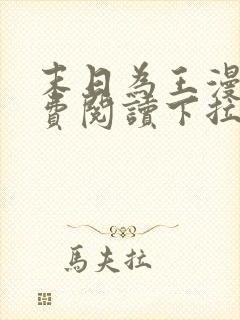 末日為王漫
費閱讀下拉
馬夫拉